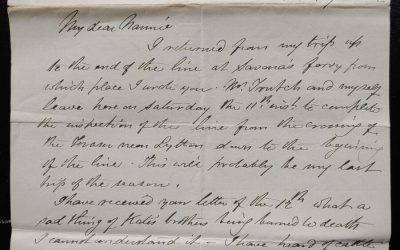 My dear Nannie
I returned from my trip up
to the end of the line at Savona's ferry from
which place I wrote you. Mr. Trutch and myself
leave here on Saturday the 11th inst to complete
the inspection of the line from the crossing of
the Fraser near Lytton down to the beginning
of the line. This will probably be my last
trip of the season.
I have received your letter of the 12th what a
sad thing of Kate's brothers being burned to death
I cannot understand it - I have heard of cattle